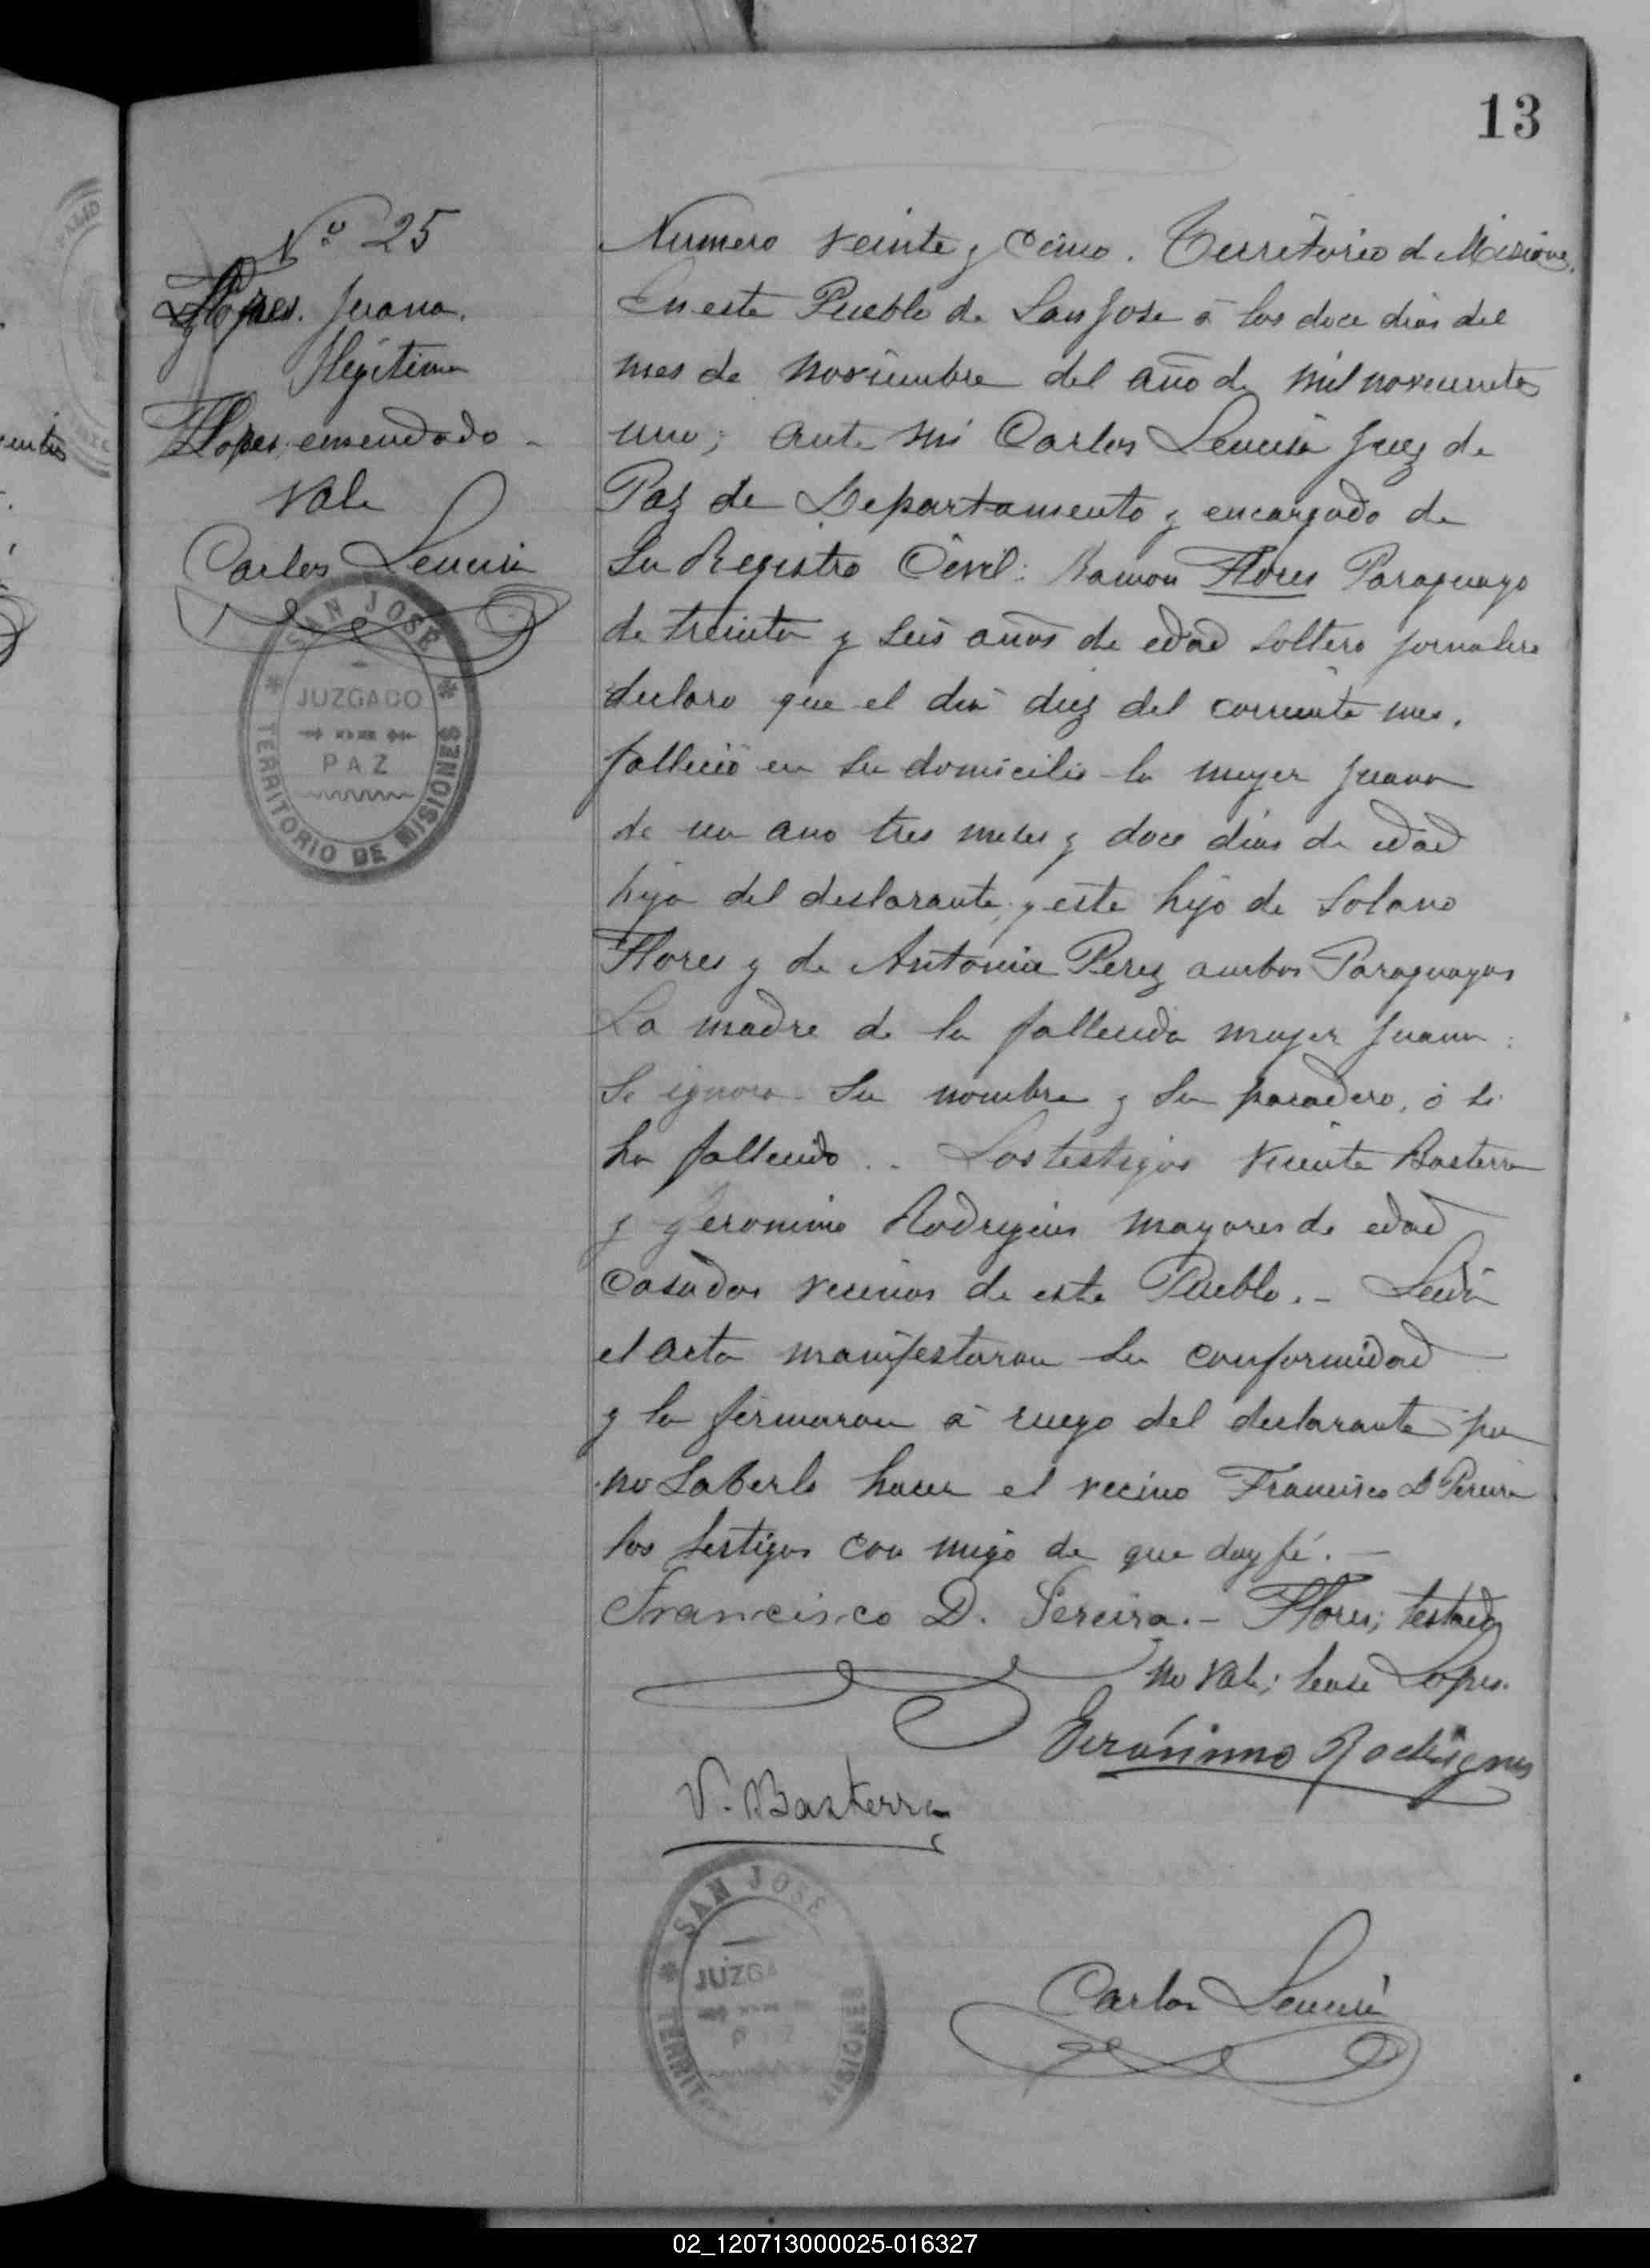 13
Nº 25
Lopes. Juana.
Ilegitima
Lopes; enmendado -
Vale
Carlos
SAN JOSE
JUZGADO
PAZ
TERRITORIO DE MISIONES
Numero veinte y Cinco. Territorio de Misiones.
En este Pueblo de San Jose á los doce dias del
mes de noviembre del año de mil novecientos
uno; ante mi Carlos Juez de
Paz de Departamento y encargado de
su Registro Civil: Ramon Flores Paraguayo
de treinta y seis años de edad soltero jornalero
declaro que el dia diez del corriente mes.
falleció en su domicilio la mujer Juana
de un ano tres meses y doce dias de edad
hija del declarante y este hijo de Solano
Flores y de Antonia Perez ambos Paraguayos
La madre de la fallecida mujer Juana:
Se ignora su nombre y su paradero, ó si
ha fallecido .. Los testigos Vicente Basterra
y Geronimo Rodrigues mayores de edad
Casados vecinos de este Pueblo. - Leida
el acta manifestaron su conformidad
y la firmaron á ruego del declarante por
no saberlo hacer el vecino Francisco D Pereira
los testigos con migo de que doy fé. -
Francisco D. Pereira. - Flores; testado
no vale; lease Lopes.
Gerónimo Rodrigues
V. Basterra
SAN JOSE
JUZGA
PAZ
TERRIT
MISIONES
Carlos
02_120713000025-016327